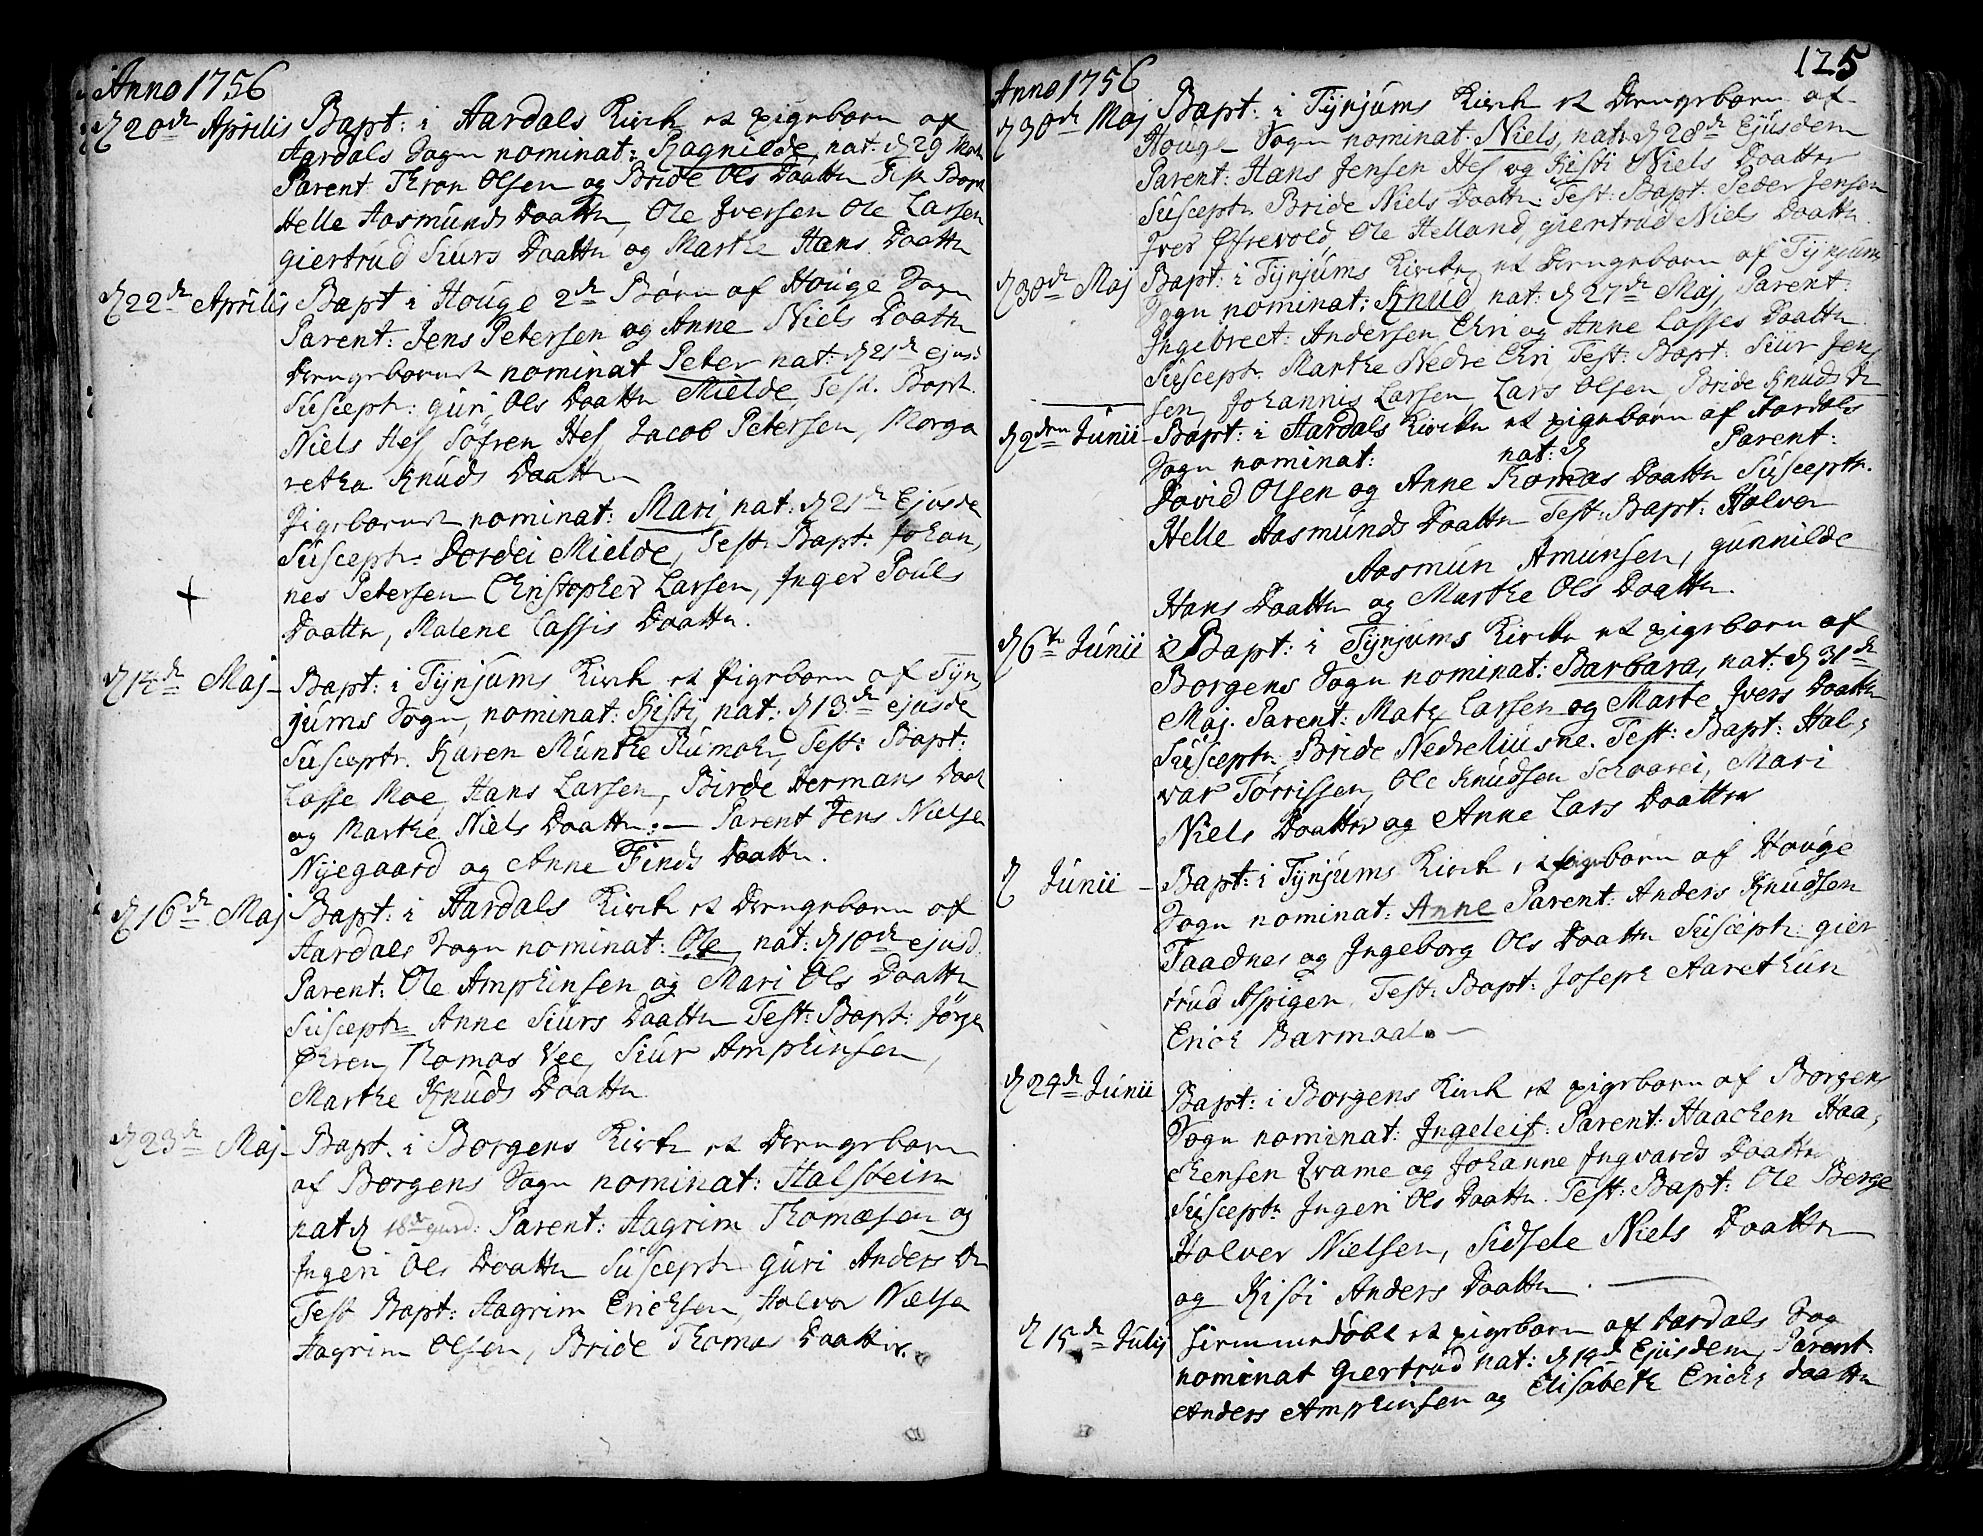 Anno 1756
d 20de Aprilis Bapt: i Aardals Kirck et pigebarn af
Aardals Sogn nominat: Ragnilde, nat: d 29 Mart
Parent: Thron Olsen og Bride Ols Daatter Test: Bapt
Helle Aasmunds Daatter, Ole Iversen Ole Larsen
giertrud Siurs Daatter og Marthe Hans Daatter
d 22de Aprilis Bapt i Houge 2de Børn af Houge Sogn
Parent: Jens Petersen og Anne Niels Daatter
Drengebarnet nominat Peter nat: d 21de ejusd:
Suscept: guri Ols Daatter Mielde, Test: Bapt.
Niels Hes Søfren Hes Jacob Petersen, Marga
retha Knuds Daatter
Pigebarnet nominat: Mari nat: d 21de Ejusde
Suscept: Dordei Mielde, Test: Bapt: Johan,
nes Petersen Christopher Larsen, Inger Pouls
Daatter, Malene Lassis Daatter.
d 14de Maj Bapt: i Tynjums Kirck et Pigebarn af Tyn,
jums Sogn, nominat: Kisti, nat: d 13de ejusde
Susceptr. Karen Munthe Rumohr, Test: Bapt:
Lasse Moe, Hans Larsen, Birde Hermans Daat
og Marthe Niels Daatter: Parent Jens Nielsen
Nyegaard og Anne Finds Daatter.
d 16de Maj Bapt: i Aardals Kirck et Drengebarn af
Aardals Sogn nominat: Ole, nat: d 10de ejusd
Parent: Ole Amphinsen og Mari Ols Daatter
Susceptr Anne Siurs Daatter Test: Bapt: Jørgen
Øhren, Thomas Vee, Siur Amphinsen,
Marthe Knuds Daatter
d 23de Maj Bapt. i Borgens Kirck et Drengebarn
af Borgens Sogn nominat: Halstein
nat d 18de Parent: Aagrim Thomæsen og
Ingeri Ols Daatter Suscept guri Anders Dr
Test Bapt: Aagrim Ericksen, Halvor Nielsen
Aagrim Olsen, Bride Thomas Daatter.
125
Anno 1756
d 30de Maj Bapt: i Tynjums Kirck et Drengebarn af
Houg Sogn nominat: Niels, nat: d 28de Ejusdem
Parent: Hans Jensen Hes og Kisti Niels Daatter
Susceptr Bride Niels Daatter Test: Bapt: Peder Jensen
Iver Øfrevold, Ole Helland, giertrud Niels Daatter
d 30de Maj Bapt: i Tynjums Kircke et Drengebarn af Tynjum
Sogn nominat: Knud nat: d 27de Maj, Parent:
Ingebrect Andersen Ehri og Anne Lasses Daatter
Susceptr. Marthe Nedre Ehri Test: Bapt: Siur Jen
sen, Johannis Larsen, Lars Olsen, Bride Knuds Dr
d 2den Junii Bapt: i Aardals Kircke et pigebarn af Aardals
Sogn nominat: nat: d Parent:
David Olsen og Anne Thomas Daatter Susceptr.
Helle Aasmunds Daatter Test: Bapt: Halvor
Aasmun Amunsen, gunnilde
Hans Daatter og Marthe Ols Daatter.
d 6te Junii Bapt: i Tynjums Kircke et pigebarn af
Borgens Sogn nominat: Barbara, nat: d 31de
Maj. Parent: Mats Larsen og Marte Ivers Daatter
Susceptr. Bride Nedreliusne. Test: Bapt: Hal,
var Torrissen, Ole Knudsen Schaarei, Mari
Niels Daatter og Anne Lars Daatter
d Junii Bapt: i Tynjums Kirck et pigebarn af Houge
Sogn nominat: Anne Parent: Anders Knudsen
Taadnes og Ingeborg Ols Daatter Susceptr: gier
trud Aspigen. Test: Bapt: Joseph Aarethun
Erick Barmaal.
d 24de Junii Bapt: i Borgens Kirck et pigebarn af Borgens
Sogn nominat: Ingeleif: Parent: Haachen Haa,
chensen Qvame og Johanne Ingvards Daatter
Susceptr. Ingeri Ols Daatter. Test: Bapt: Ole Berge
Halver Nielsen, Sidsele Niels Daatter
og Kisti Anders Daatter.
d 15de Julij hiemmedøbt et pigebarn af Aardals Sog
nominat giertrud nat: d 14de Ejusdem, Parent
Anders Amphinsen og Elisabeth Erichs Daatter